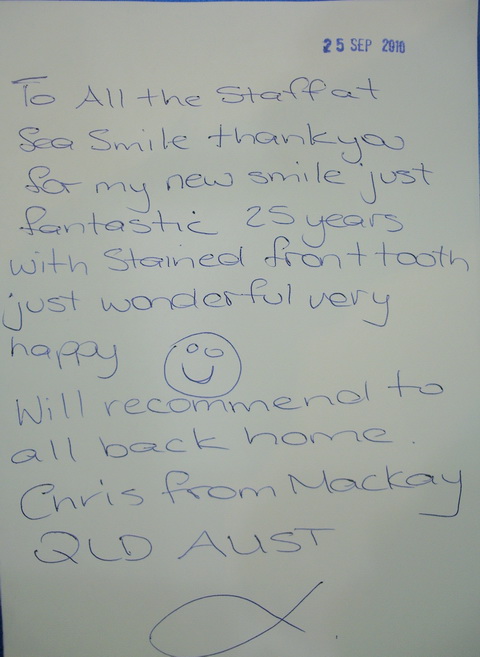 25 SEP 2010
To All the Staff at
Sea Smile thankyou
for my new smile just
fantastic 25 years
with Stained front tooth
just wonderful very
happy
Will recommend to
all back home.
Chris from Mackay
QLD AUST